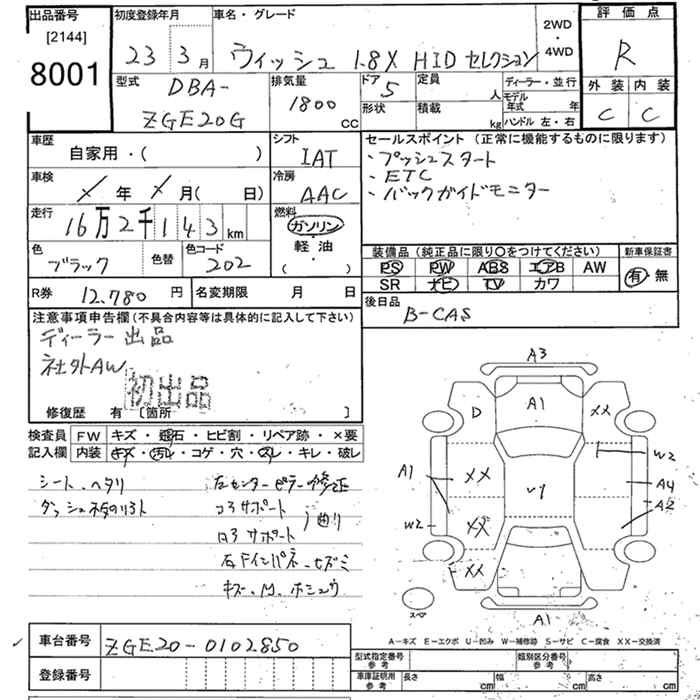 出品番号
[2144]
8001
初度登録年月
23 3月
車名・グレード
ウィッシュ 1.8X HIDセレクション
2WD
・
4WD
評価点
R
外装 内装
C C
型式
DBA-
ZGE20G
排気量
1800
CC
ドア
5
定員
人
形状
積載
kg
ディーラー・並行
モデル
年式 年
ハンドル 左・右
車歴
自家用・( )
シフト
IAT
セールスポイント (正常に機能するものに限ります)
・プッシュスタート
・ETC
・バックガイドモニター
車検
年 月( 日)
冷房
AAC
走行
16万2千143km
燃料
ガソリン
・
軽油
・
( )
色
ブラック
色替
色コード
202
装備品 (純正品に限り○をつけてください)
PS PW ABS エアB AW
SR ナビ TV カワ
新車保証書
有・無
R券
12,780 円
名変期限 月 日
後日品
B-CAS
注意事項申告欄 (不具合内容等は具体的に記入して下さい)
ディーラー出品
社外AW
初出品
修復歴 有 〔箇所 〕
検査員
記入欄
FW キズ・飛石・ヒビ割・リペア跡・×要
内装 キズ・汚レ・コゲ・穴・スレ・キレ・破レ
シート、ヘタリ
左センターピラー修正
コアサポート
曲り
キズ、M、ホシュウ
A3
D
A1
XX
W2
A1
XX
A4
A2
W2
XX
XX
スペア
A1
A-キズ E-エクボ U-凹み W-補修跡 S-サビ C-腐食 XX-交換済
車台番号
ZGE20-0102850
登録番号
型式指定番号
参考
類別区分番号
参考
車庫証明用
参考
長さ cm
幅 cm
高さ cm